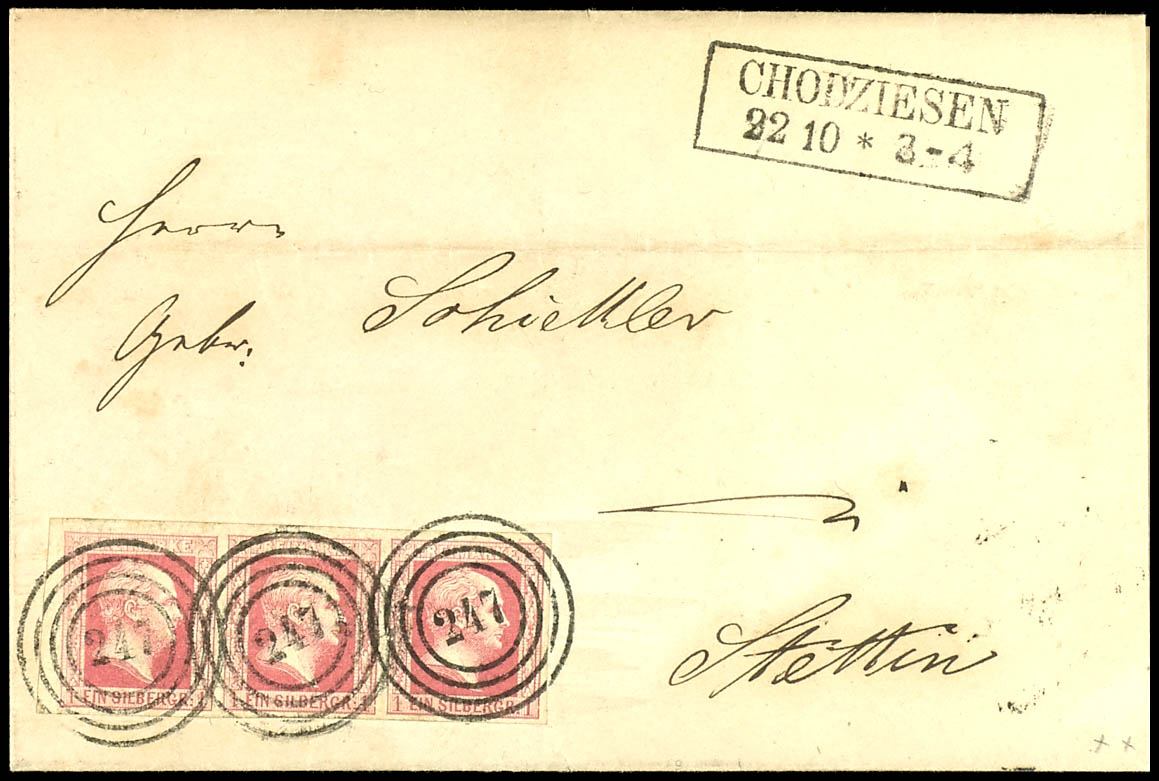 CHODZIESEN
22 10 * 3-4
Herrn
Gebr. Schickler
Stettin
247 247 247
1 EIN SILBERGR. 1 1 EIN SILBERGR. 1 1 EIN SILBERGR. 1